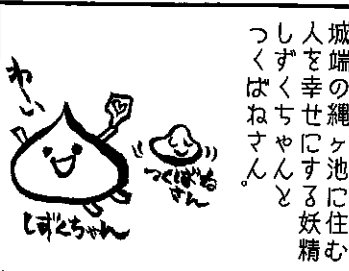 城端の縄ヶ池に住む
人を幸せにする妖精
しずくちゃんと
つくばねさん。
わーい
つくばね
さん
しずくちゃん